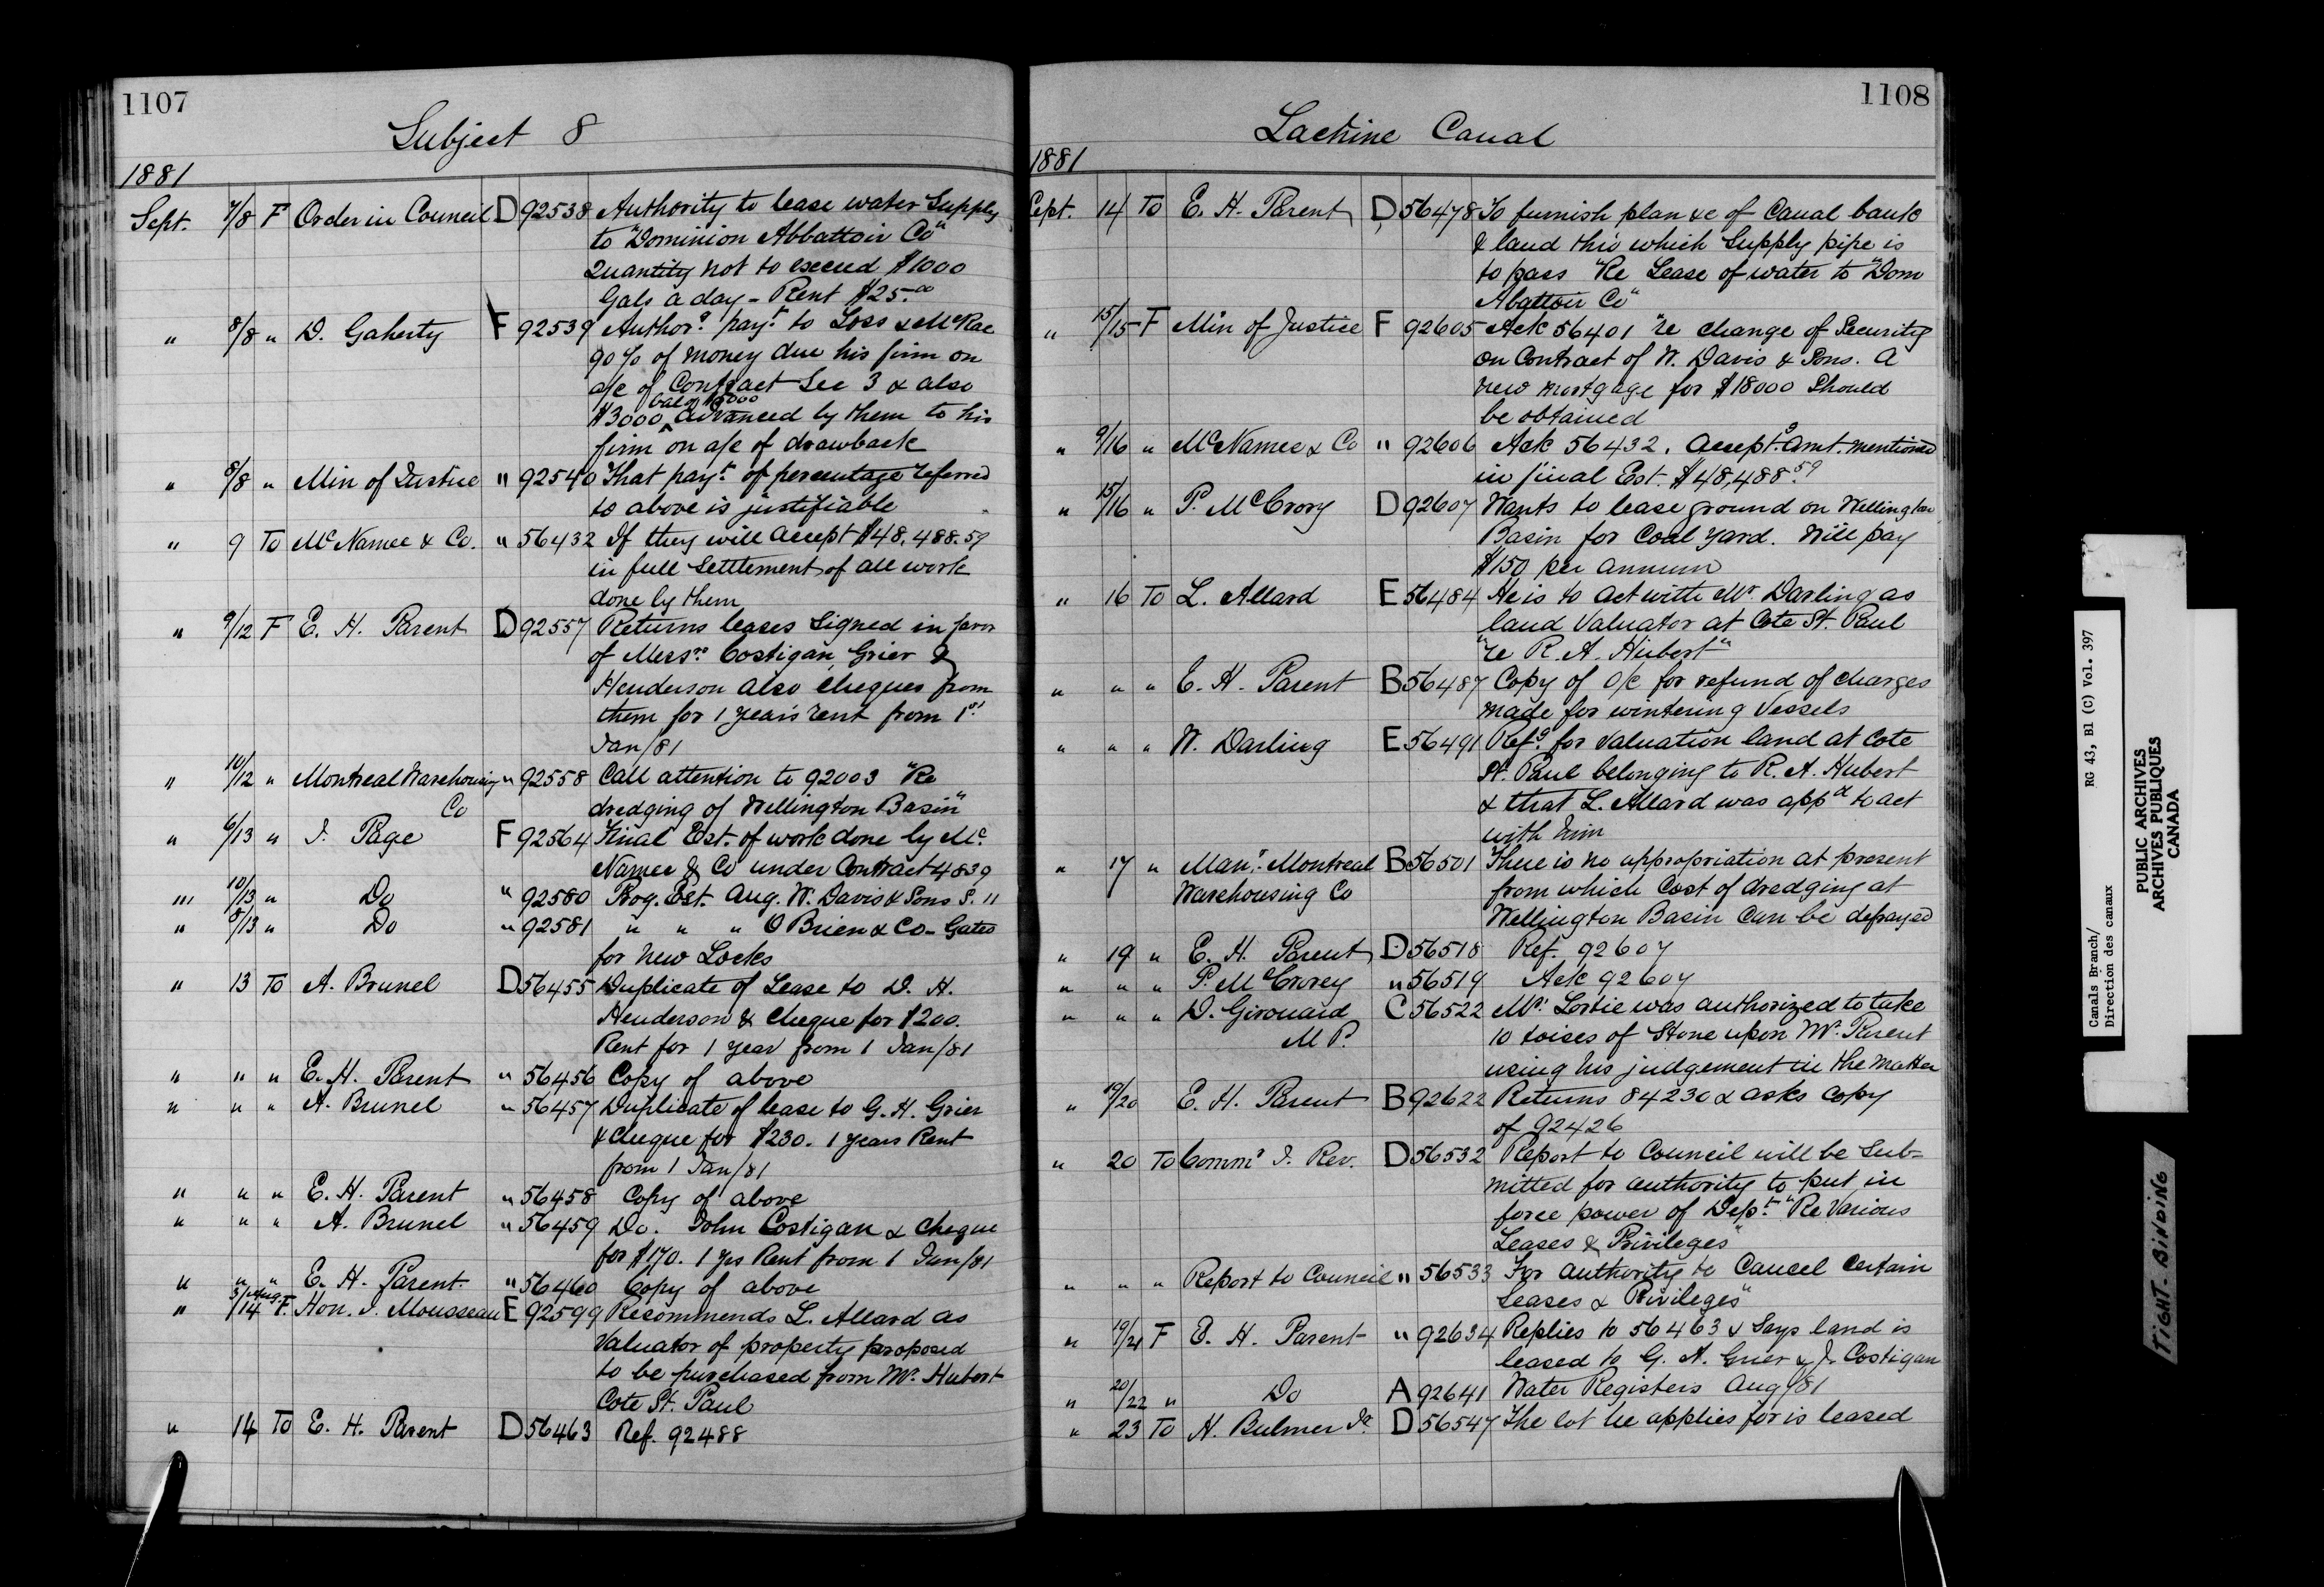 1107
Subject 8
1881
Sept. 7/8 F Order in Council D 92538 Authority to lease water Supply
to "Dominion Abbattoir Co"
Quantity not to exceed $1000
Gals a day - Rent $25.00
" 8/8 " D. Gaherty F 92539 Authorg payt to Loss & McRae
90% of money due his firm on
a/c of Contract Sec 3 & also
bal of $5000
$3000 ^ advanced by them to his
firm on a/c of drawback
" 8/8 " Min of Justice " 92540 That payt of percentage referred
to above is justifiable
" 9 To McNamee & Co. " 56432 If they will accept $48,488.59
in full Settlement of all work
done by them
" 9/12 F E. H. Parent D 92557 Returns leases Signed in favor
of Messrs Costigan, Grier &
Henderson also cheques from
them for 1 year's rent from 1st
Jan/81
" 10/12 " Montreal Warehousing " 92558 Call attention to 92003 "Re
Co dredging of Wellington Basin"
" 6/13 " J. Page F 92564 Final Est. of work done by Mc
Namee & Co under Contract 4839
" 10/13 " Do " 92580 Prog. Est. Aug. W. Davis & Sons S. 11
" 8/13 " Do " 92581 " " " O'Brien & Co - Gates
for New Locks
" 13 To A. Brunel D 56455 Duplicate of Lease to D. H.
Henderson & Cheque for $200.
Rent for 1 year from 1 Jan/81
" " " E. H. Parent " 56456 Copy of above
" " " A. Brunel " 56457 Duplicate of lease to G. H. Grier
& cheque for $230. 1 years Rent
from 1 Jan/81
" " " E. H. Parent " 56458 Copy of above
" " " A. Brunel " 56459 Do. John Costigan & cheque
for $170. 1 yrs Rent from 1 Jan/81
" " " E. H. Parent " 56460 Copy of above
" 5/Aug/14 F. Hon. J. Mousseau E 92599 Recommends L. Allard as
Valuator of property proposed
to be purchased from Mr. Hubert
Cote St. Paul
" 14 To E. H. Parent D 56463 Ref. 92488
1108
Lachine Canal
1881
Sept. 14 To E. H. Parent D 56478 To furnish plan &c of Canal bank
& land thro which Supply pipe is
to pass "Re Lease of water to "Dom
Abattoir Co"
" 15/15 F Min of Justice F 92605 Ack 56401 "re change of Security
on Contract of W. Davis & Sons. A
new mortgage for $18000 Should
be obtained
" 9/16 " McNamee & Co " 92606 Ack 56432. Acceptg amt. mentioned
in final Est. $48,488.59
" 15/16 " P. McCrory D 92607 Wants to lease ground on Wellington
Basin for Coal Yard. Will pay
$150 per annum
" 16 To L. Allard E 56484 He is to act with Mr. Darling as
land Valuator at Cote St. Paul
"re R. A. Hubert"
" " " E. H. Parent B 56487 Copy of O/C for refund of charges
made for wintering Vessels
" " " W. Darling E 56491 Refg for valuation land at Cote
St. Paul belonging to R. A. Hubert
& that L. Allard was appd to act
with him
" 17 " Manr Montreal B 56501 There is no appropriation at present
Warehousing Co from which Cost of dredging at
Wellington Basin can be defrayed
" 19 " E. H. Parent D 56518 Ref. 92607
" " " P. McCrorey " 56519 Ack 92607
" " " D. Girouard C 56522 Mr. Lortie was authorized to take
M P. 10 toises of Stone upon Mr. Parent
using his judgement in the matter
" 19/20 E. H. Parent B 92622 Returns 84230 & asks copy
of 92426
" 20 To Commr I. Rev. D 56532 Report to Council will be Sub-
mitted for authority to put in
force power of Dept "Re Various
Leases & Privileges"
" " " Report to Council " 56533 For authority to Cancel Certain
Leases & Privileges"
" 19/21 F E. H. Parent " 92634 Replies to 56463 & Says land is
leased to G. A. Grier & J. Costigan
" 20/22 " Do A 92641 Water Registers Aug/81
" 23 To H. Bulmer Jr. D 56547 The lot he applies for is leased
Canals Branch/
Direction des canaux
RG 43, B1 (c) Vol. 397
PUBLIC ARCHIVES
ARCHIVES PUBLIQUES
CANADA
TIGHT BINDING